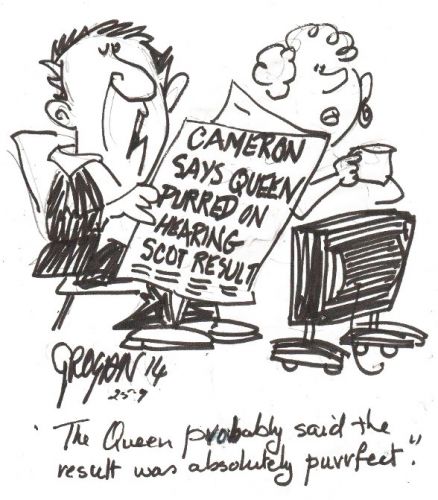 CAMERON
SAYS QUEEN
PURRED ON
HEARING
SCOT RESULT
GROGAN 14
25-9
'The Queen probably said the
result was absolutely purrfect".